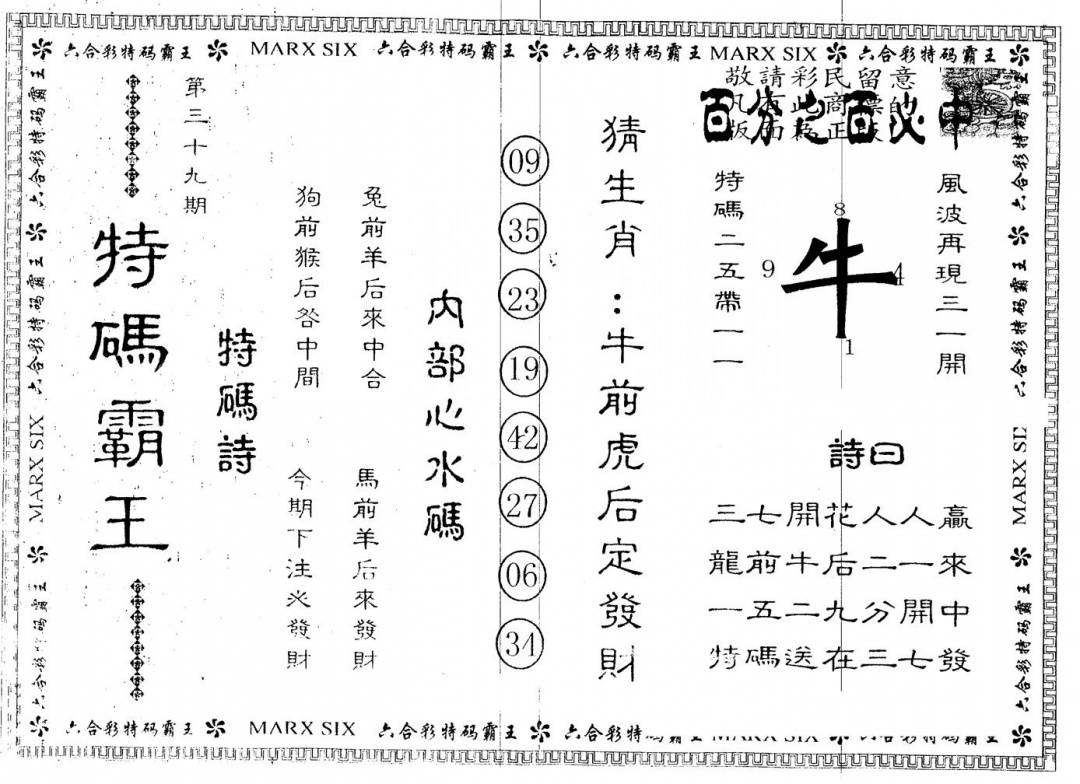 六合彩特码霸王 MARX SIX 六合彩特码霸王 六合彩特码霸王 MARX SIX 六合彩特码霸王
敬請彩民留意
百分之百必中
風波再現三一開
特碼二五帶一一
8
9 牛 4
1
詩曰
三七開花人人贏
龍前牛后二一來
一五二九分開中
特碼送在三七發
猜生肖:牛前虎后定發財
09
35
23
19
42
27
06
34
内部心水碼
兔前羊后來中合
馬前羊后來發財
狗前猴后咎中間
今期下注必發財
特碼詩
第三十九期
特碼霸王
六合彩特码霸王 六合彩特码霸王 MARX SIX 六合彩特码霸王
六合彩特码霸王 六合彩特码霸王 MARX SI 六合彩特码霸王
六合彩特码霸王 MARX SIX 六合彩特码霸王 六合彩特